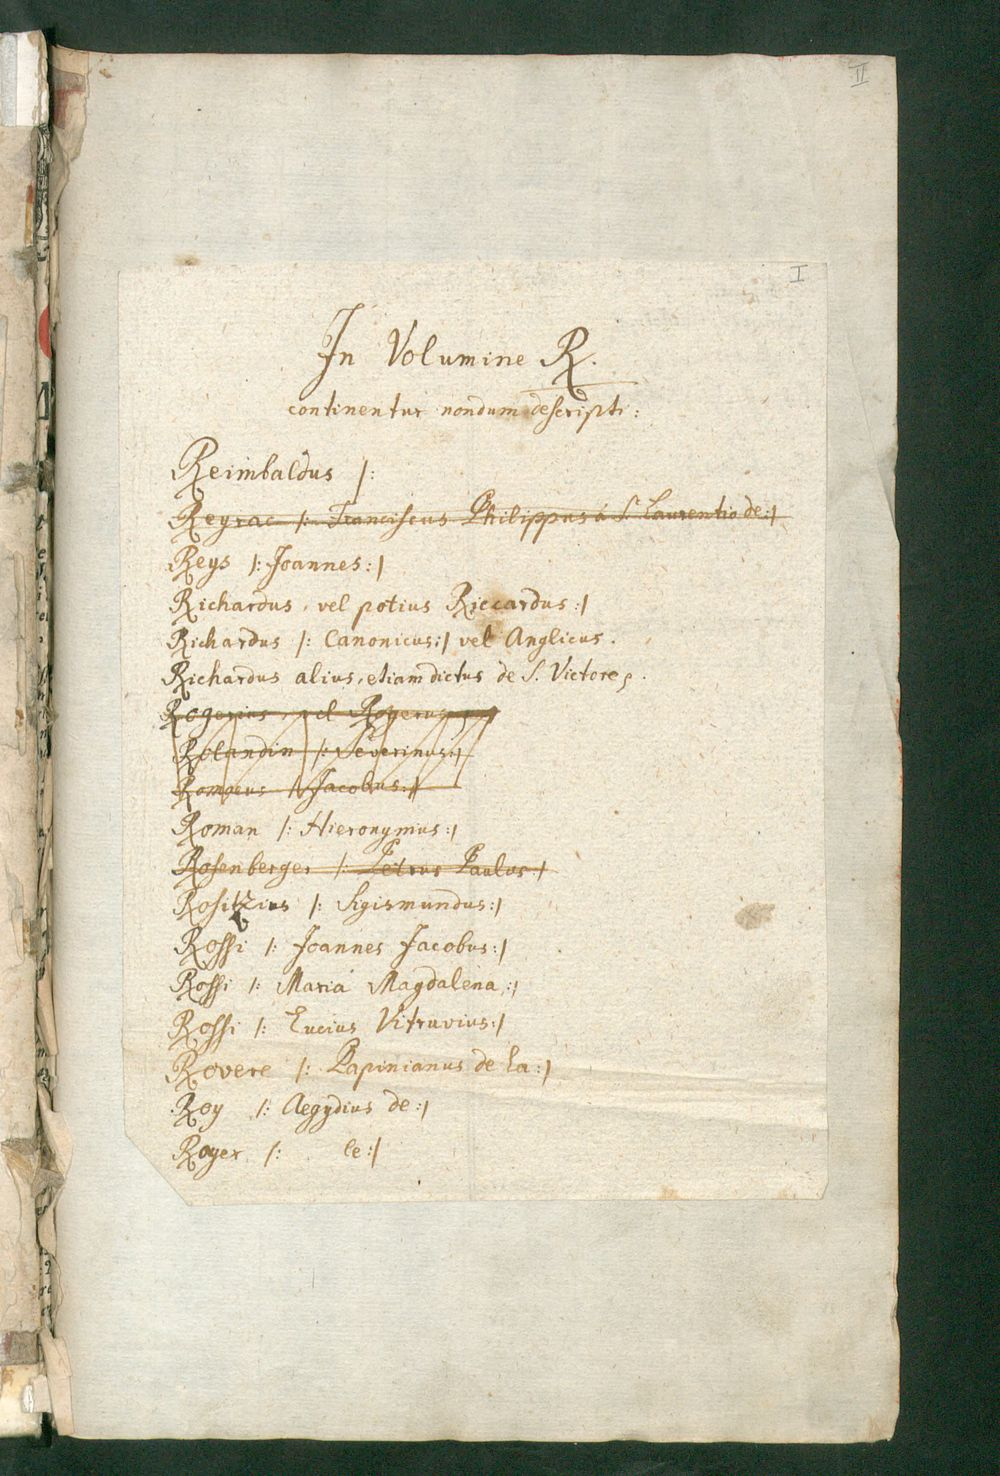 II
I
In Volumine R.
continentur nondum descripti:
Reimbaldus /:
Reyrac /: Franciscus Philippus á S. Laurentio de:/
Reys /: Joannes:/
Richardus, vel potius Riccardus:/
Richardus /: Canonicus:/ vel Anglicus.
Richardus alius, etiam dictus de S. Victore.
Rogerius, vel Rogerus
Rolandin /: Severinus:/
Romaeus /: Jacobus:/
Roman /: Hieronymus:/
Rosenberger /: Petrus Paulus:/
Rositzius /: Sigismundus:/
Rossi /: Joannes Jacobus:/
Rossi /: Maria Magdalena:/
Rossi /: Lucius Vitruvius:/
Rovere /: Papinianus de la:/
Roy /: Aegydius de:/
Royer /: le:/